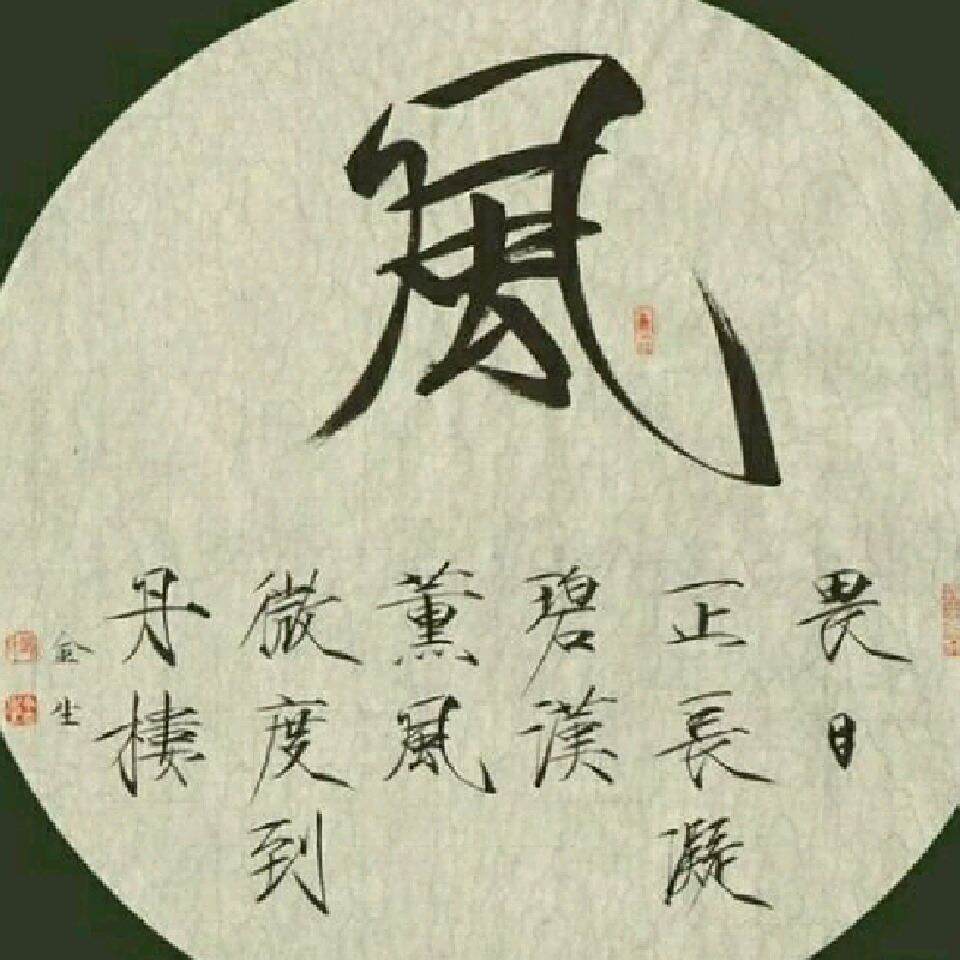 風
畏日
正長凝
碧漢
薰風
微度到
丹樓
金生